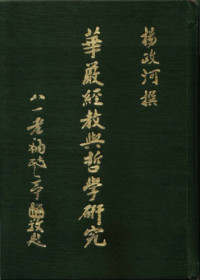 楊政河撰
華嚴經教與哲學研究
八一老
敬題